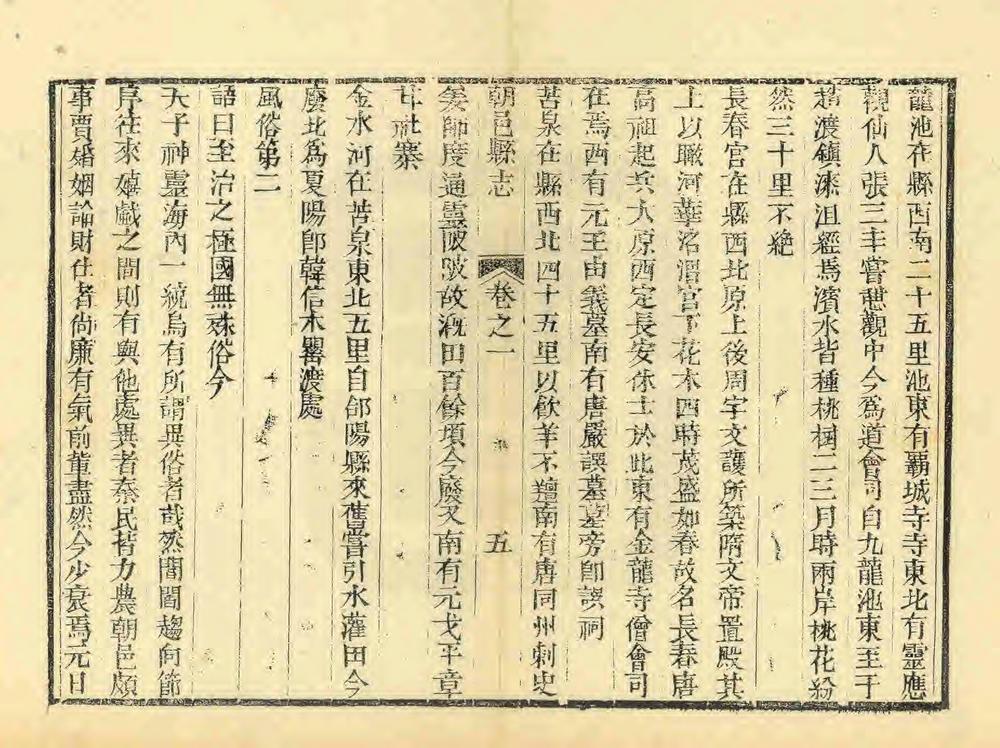 龍池在縣西南二十五里池東有覇城寺寺東北有靈應
觀仙人張三丰嘗憇觀中今爲道會司自九龍池東至于
趙渡鎮漆沮經焉濱水皆種桃樹二三月時兩岸桃花紛
然三十里不絶
長春宮在縣西北原上後周宇文護所築隋文帝置殿其
上以瞰河華洛渭宮下花木四時茂盛如春故名長春唐
高祖起兵太原西定長安休士於此東有金龍寺僧會司
在焉西有元王由義墓南有唐嚴譔墓墓旁卽譔祠
苦泉在縣西北四十五里以飲羊不羶南有唐同州刺史
朝邑縣志 卷之一 五
姜師度通靈陂陂故溉田百餘頃今廢又南有元戈平章
社寨
金水河在苦泉東北五里自郃陽縣來舊嘗引水灌田今
廢北爲夏陽卽韓信木罌渡處
風俗第二
語曰至治之極國無殊俗今
天子神靈海內一統烏有所謂異俗者哉然閭閻趨向節
序往來嬉戲之間則有與他處異者秦民皆力農朝邑頗
事賈婚姻論財仕者尚廉有氣前輩盡然今少衰焉元日